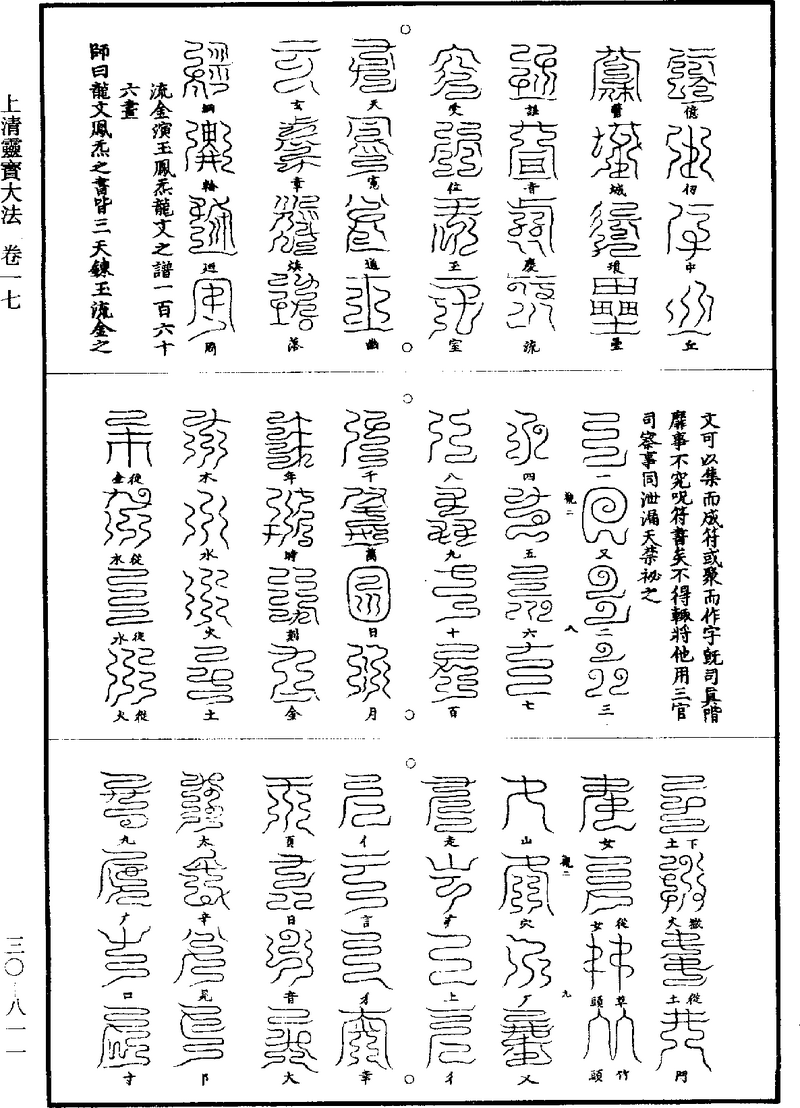 上清靈寳大法 卷一七
三〇-八一一
億 仞 中 丘
鬱 城 瓊 壘
誰 音 慶 流
受 位 玉 室
天 寬 道 幽
玄 章 煥 落
綱 輪 迴 周
流金演玉鳳炁龍文之譜一百六十
六畫
師曰龍文鳳炁之書皆三天鍊玉流金之
文可以集而成符或聚而作字旣司眞階
靡事不究呪符書矣不得輒將他用三官
司察事同泄漏天禁祕之
一 又 二 三
觀二 八
四 五 六 七
八 九 十 百
千 萬 日 月
年 時 刻 金
木 水 火 土
從金 從水 從水 從火
下土 嶽火 從土 門
女 從女 草頭 竹頭
觀二 九
山 穴 厂 乂
走 疒 上 彳
亻 言 才 幸
頁 日 音 大
太 辛 見 阝
九 广 口 寸